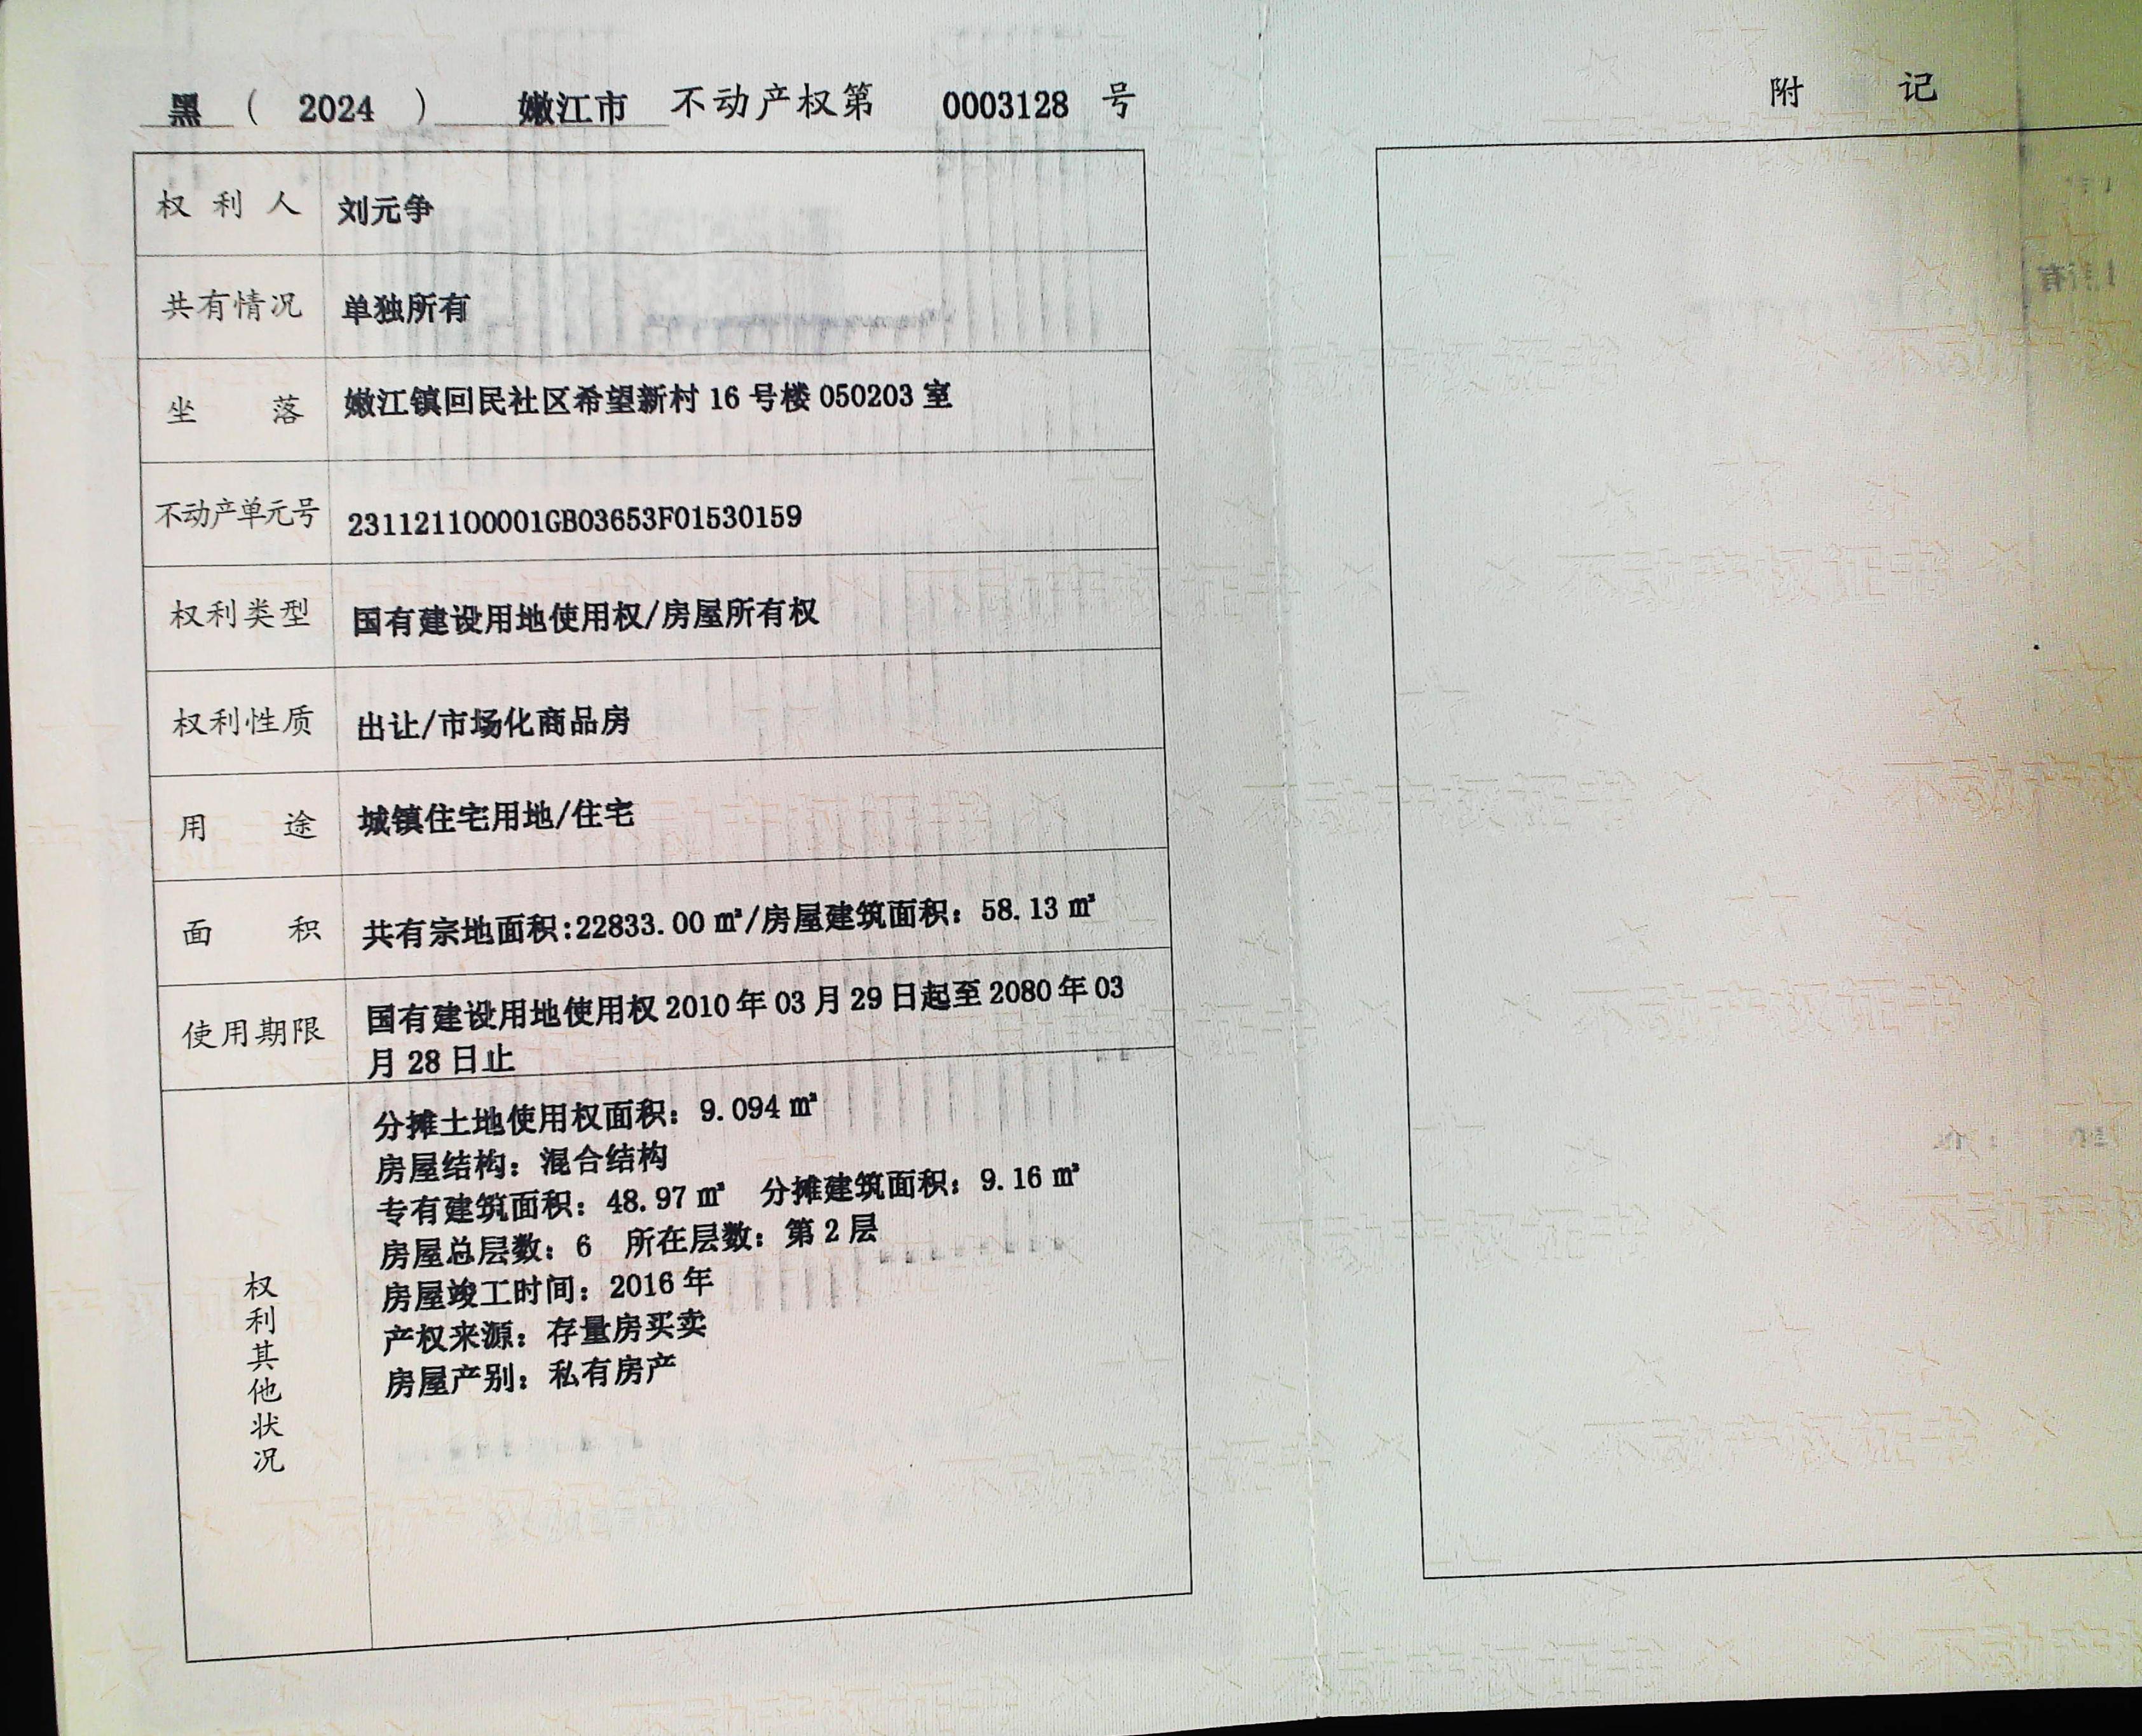 黑 ( 2024 ) 嫩江市 不动产权第 0003128 号
权利人 刘元争
共有情况 单独所有
坐落 嫩江镇回民社区希望新村 16 号楼 050203 室
不动产单元号 231121100001GB03653F01530159
权利类型 国有建设用地使用权/房屋所有权
权利性质 出让/市场化商品房
用途 城镇住宅用地/住宅
面积 共有宗地面积:22833.00 ㎡/房屋建筑面积: 58.13 ㎡
使用期限 国有建设用地使用权 2010 年 03 月 29 日起至 2080 年 03
月 28 日止
权利其他状况
分摊土地使用权面积: 9.094 ㎡
房屋结构: 混合结构
专有建筑面积: 48.97 ㎡ 分摊建筑面积: 9.16 ㎡
房屋总层数: 6 所在层数: 第 2 层
房屋竣工时间: 2016 年
产权来源: 存量房买卖
房屋产别: 私有房产
附记